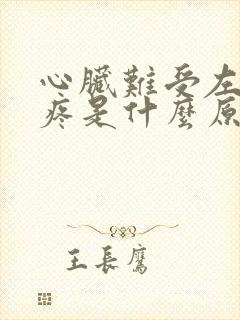 心臟難受左
疼是什麼原
王長鷹